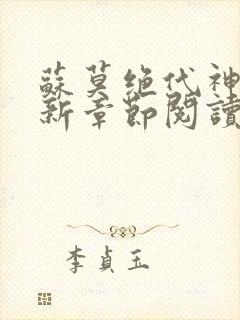 蘇莫绝代神
新章節閱讀
李貞玉